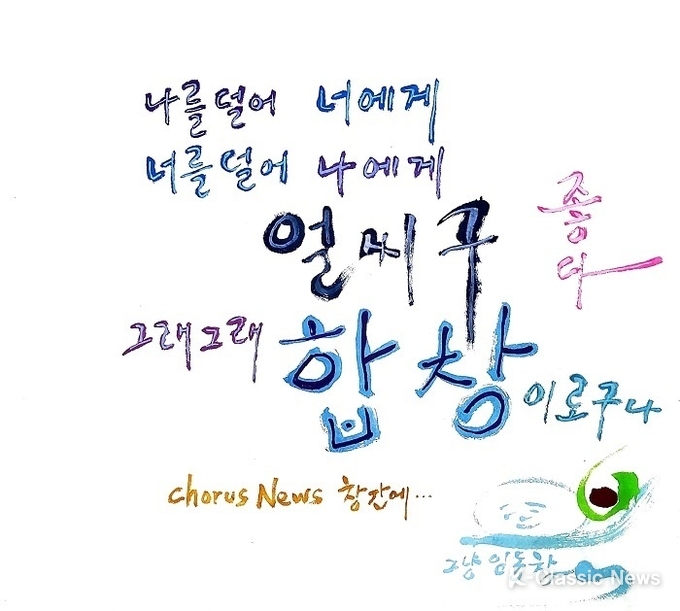 나를 덜어 너에게
너를 덜어 나에게
얼씨구
좋다
그래그래 합창이로구나
Chorus News 창간에...
그냥 임동창
K-Classic News